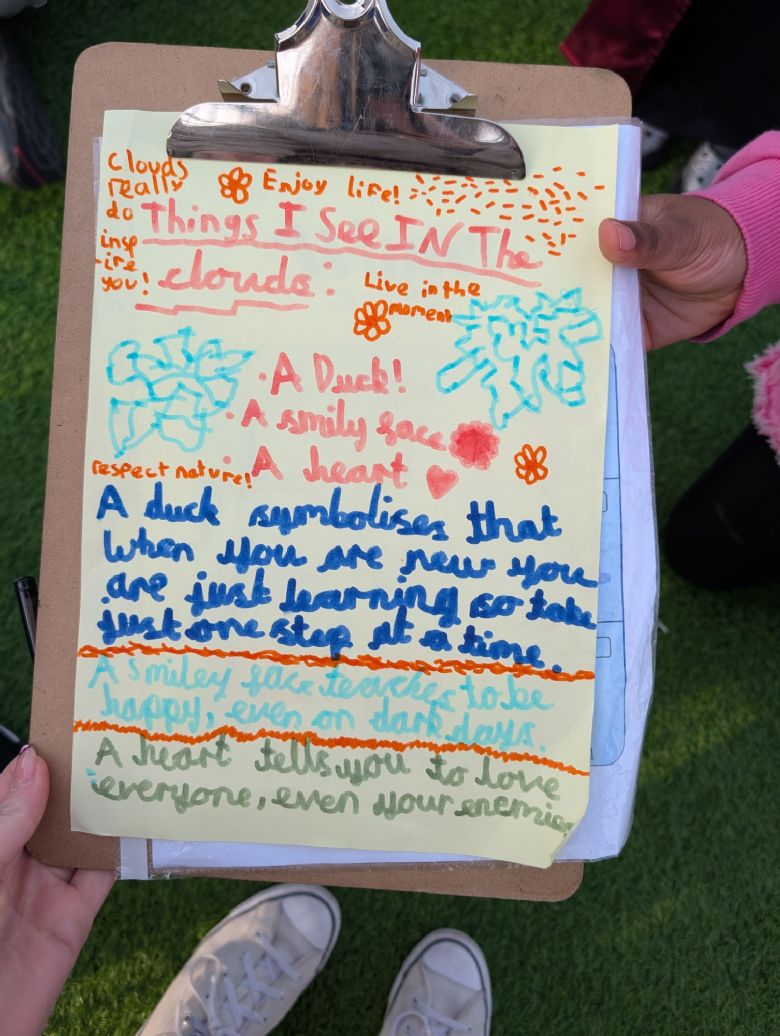 clouds
really
do
insp
-ire
you!
Enjoy life!
Things I See IN The
clouds:
Live in the
moment
· A Duck!
· A smily face
· A heart
respect nature!
A duck symbolises that
when you are new you
are just learning so take
just one step at a time.
A smiley face teaches to be
happy, even on dark days.
A heart tells you to love
everyone, even your enemies